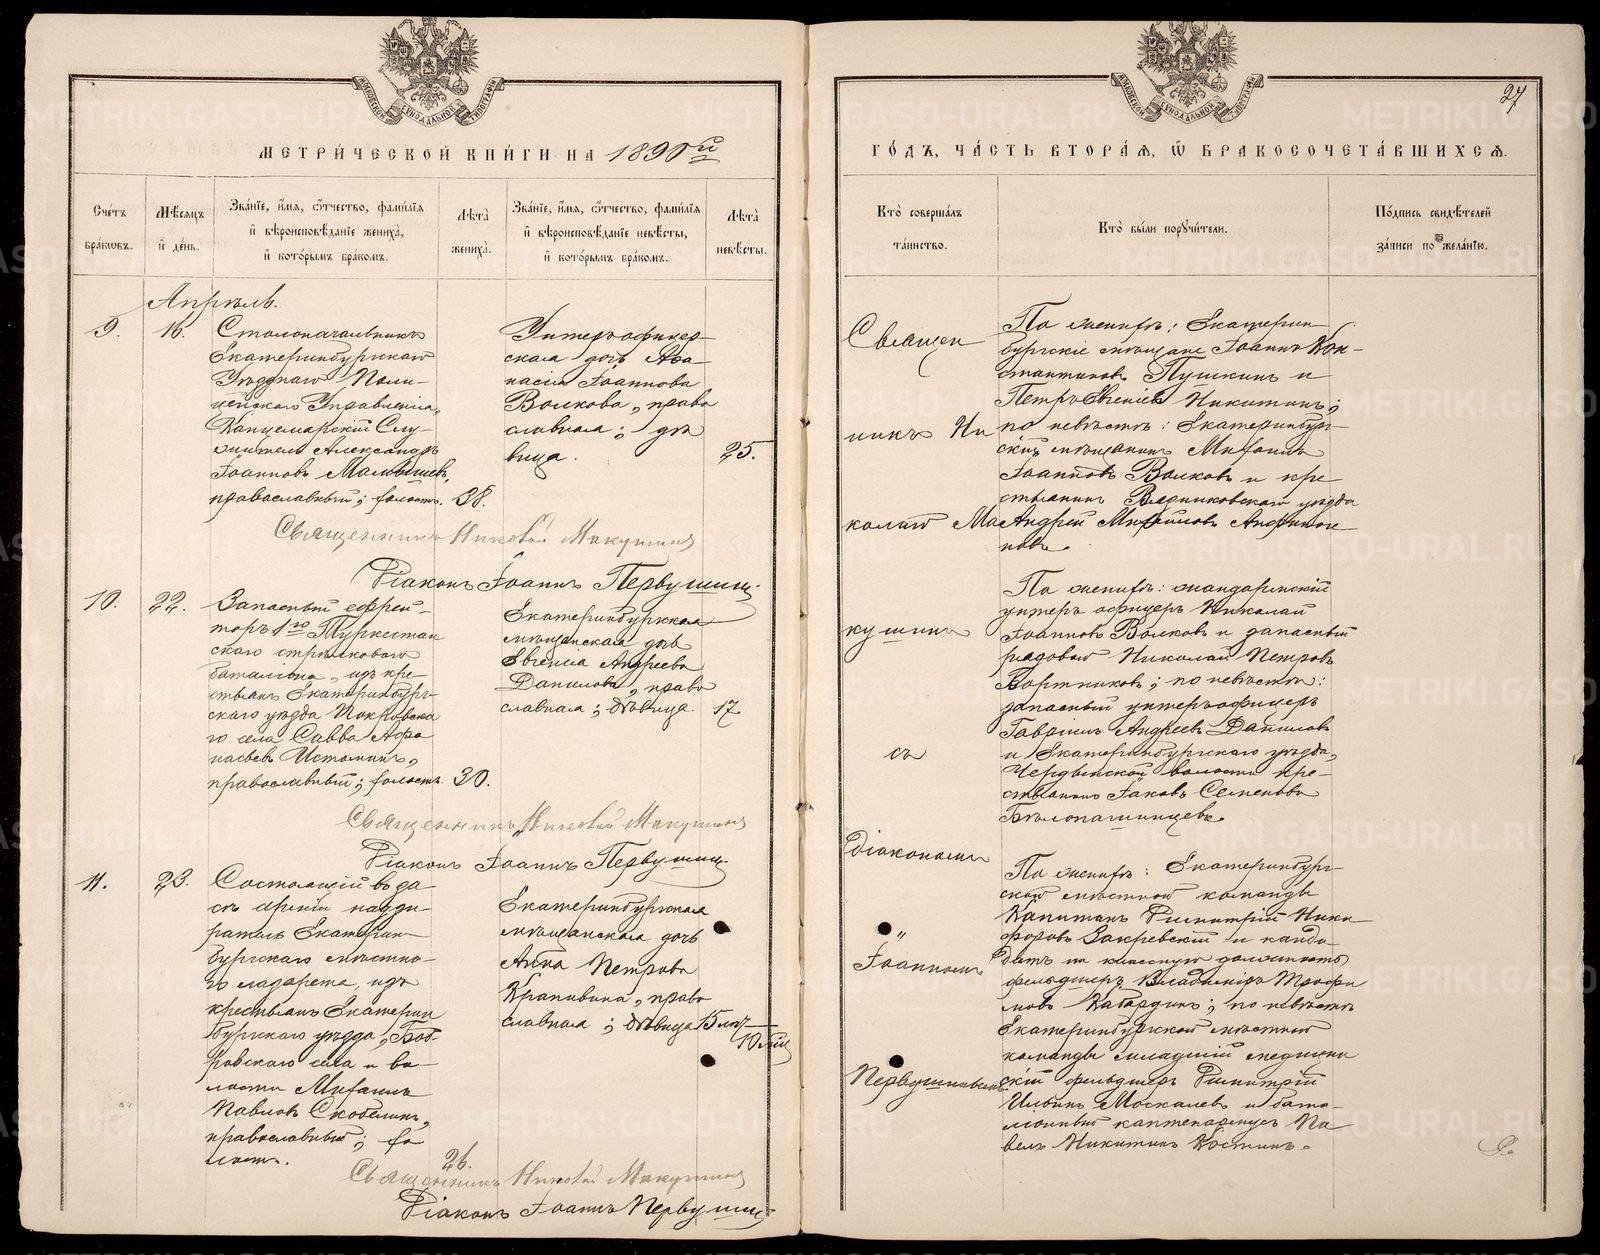 МЕТРИ́ЧЕСКОЙ КНИ́ГИ НА 1890й
Сче́тъ бра́ковъ.
Мѣ́сяцъ и де́нь.
Зва́нїе, и́мя, ѻ҆́тчество, фами́лїя и вѣроисповѣ́данїе жениха̀, и кото́рымъ бра́комъ.
Лѣта̀ жениха̀.
Зва́нїе, и́мя, ѻ҆́тчество, фами́лїя и вѣроисповѣ́данїе невѣ́сты, и кото́рымъ бра́комъ.
Лѣта̀ невѣ́сты.
Апрѣль.
9.
16.
Столоначальникъ
Екатеринбургскаго
Уѣзднаго Поли-
цейскаго Управленія,
Канцелярскій Слу-
житель Александръ
Іоанновъ Малышевъ,
православный; холостъ.
38.
Унтеръ-офицер-
ская дочь Аѳа-
насія Іоаннова
Волкова, право
славная; дѣ
вица.
25.
Священникъ Николай Макушинъ
Діаконъ Іоаннъ Первушинъ.
10.
22.
Запасный ефрей-
торъ 1го Туркестан
скаго стрѣлковаго
баталіона, изъ кре-
стьянъ Екатеринбург-
скаго уѣзда Покровска
го села Савва Аѳа
насьевъ Истоминъ,
православный; холостъ.
30.
Екатеринбургская
мѣщанская дочь
Евгенія Андреева
Данилова, право
славная; дѣвица.
17.
Священникъ Николай Макушинъ
Діаконъ Іоаннъ Первушинъ.
11.
23.
Состоящій въ за-
пасѣ арміи надзи-
ратель Екатерин-
бургскаго мѣстна-
го лазарета, изъ
крестьянъ Екатерин
бургскаго уѣзда, Боб-
ровскаго села и во-
лости Михаилъ
Павловъ Скобелинъ,
православный; хо
лостъ.
26.
Екатеринбургская
мѣщанская дочь
Анна Петрова
Крапивина, право
славная; дѣвица
15 лѣт
10 мѣс
Священникъ Николай Макушинъ
Діаконъ Іоаннъ Первушинъ
27
ГО́ДЪ, ЧА́СТЬ ВТОРА́Я, Ѡ҆ БРАКОСОЧЕТА́ВШИХСЯ.
Кто̀ соверша́лъ та́инство.
Кто̀ бы́ли поручи́тели.
По́дпись свидѣ́телей за́писи по жела́нію.
Священ
никъ Ни
колай Ма
кушинъ
съ
Діакономъ
Іоанномъ
Первушинымъ
По женихѣ: Екатерин-
бургскіе мѣщане Іоаннъ Кон-
стантиновъ Пушкинъ и
Петръ Евгеніевъ Никитинъ;
по невѣстѣ: Екатеринбург-
скій мѣщанинъ Михаилъ
Іоанновъ Волковъ и кре
стьянинъ Вязниковскаго уѣзда
Андрей Михайловъ
По женихѣ: жандармскій
унтеръ офицеръ Николай
Іоанновъ Волковъ и запасный
рядовой Николай Петровъ
Бортниковъ; по невѣстѣ:
запасный унтеръ-офицеръ
Гавріилъ Андреевъ Даниловъ
и Екатеринбургскаго уѣзда,
волости кре-
стьянинъ Іаковъ Семеновъ
Бѣлопашинцевъ.
По женихѣ: Екатеринбург-
ской мѣстной команды
Капитанъ Димитрій Ники
форовъ Закревскій и канди-
датъ на классную должность
фельдшеръ Владиміръ Трофи
мовъ Кабардинъ; по невѣстѣ
Екатеринбургской мѣстной
команды младшій медицин
скій фельдшеръ Димитрій
Ильинъ Москалевъ и бата-
ліонный каптенармусъ Па
велъ Никитинъ Костинъ.